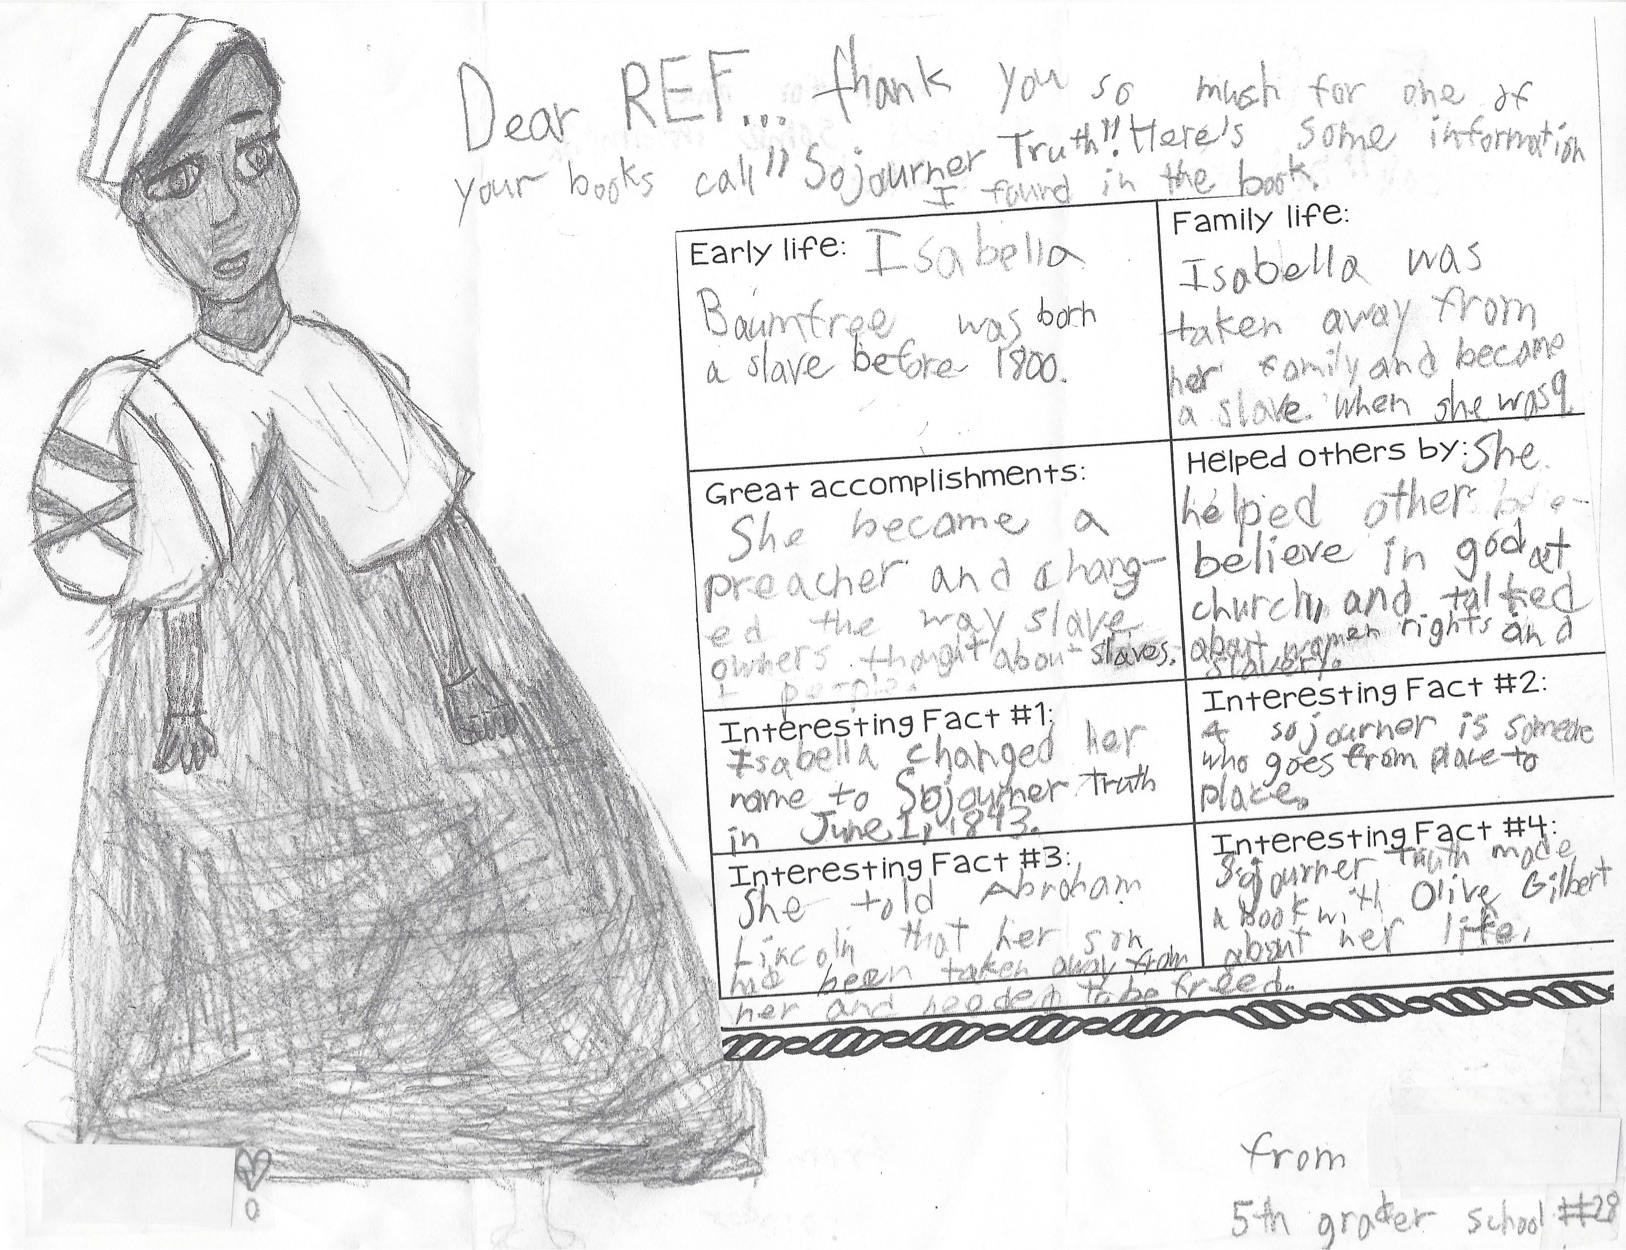 Dear REF... thank you so mush for one of
your books call "Sojourner Truth"! Here's some information
I found in the book.
Early life: Isabella
Baumfree was born
a slave before 1800.
Family life:
Isabella was
taken away from
her family and became
a slave when she was 9
Great accomplishments:
She became a
preacher and chang-
ed the way slave
owners thought about slaves.
Helped others by: She
helped other
believe in god at
church, and talked
about women rights and
slavery.
Interesting Fact #1:
Isabella changed her
name to Sojourner Truth
in June 1, 1843.
Interesting Fact #2:
A sojourner is someone
who goes from place to
place.
Interesting Fact #3:
She told Abraham
Lincoln that her son
had been taken away from
her and needed to be freed.
Interesting Fact #4:
Sojourner Truth made
a book with Olive Gilbert
about her life.
from
5th grader school #28